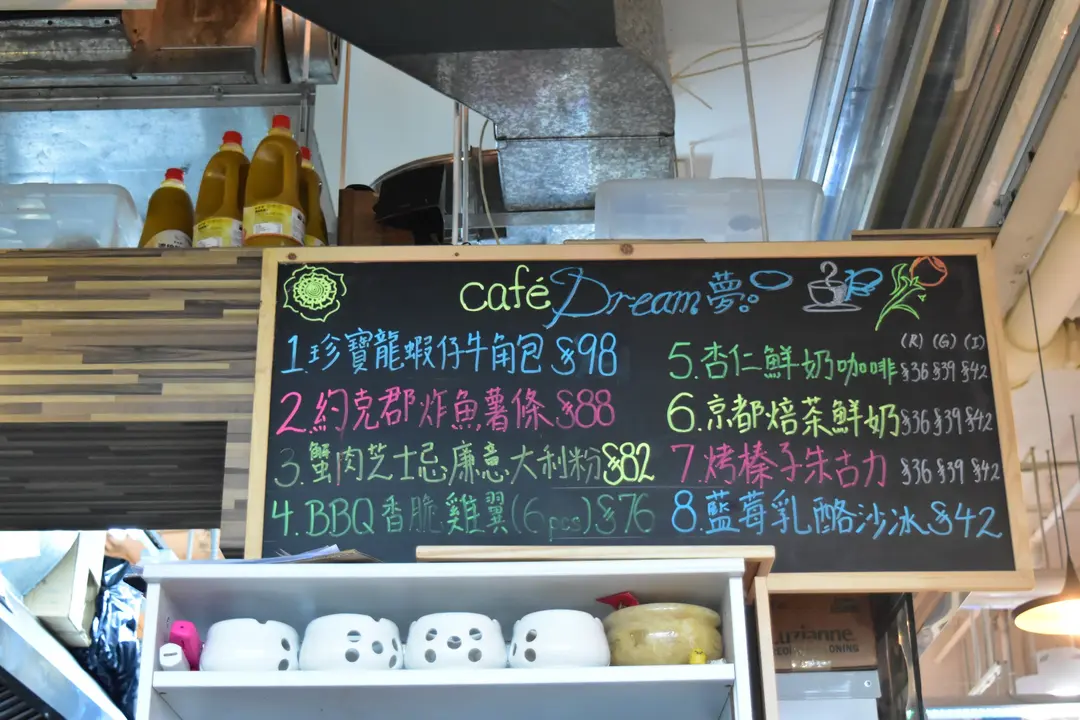 café Dream 夢
1.珍寶龍蝦仔牛角包 $98
2.約克郡炸魚薯條 $88
3.蟹肉芝士忌廉意大利粉 $82
4.BBQ香脆雞翼(6pcs) $76
(R) (G) (I)
5.杏仁鮮奶咖啡 $36 $39 $42
6.京都焙茶鮮奶 $36 $39 $42
7.烤榛子朱古力 $36 $39 $42
8.藍莓乳酪沙冰 $42
uzianne